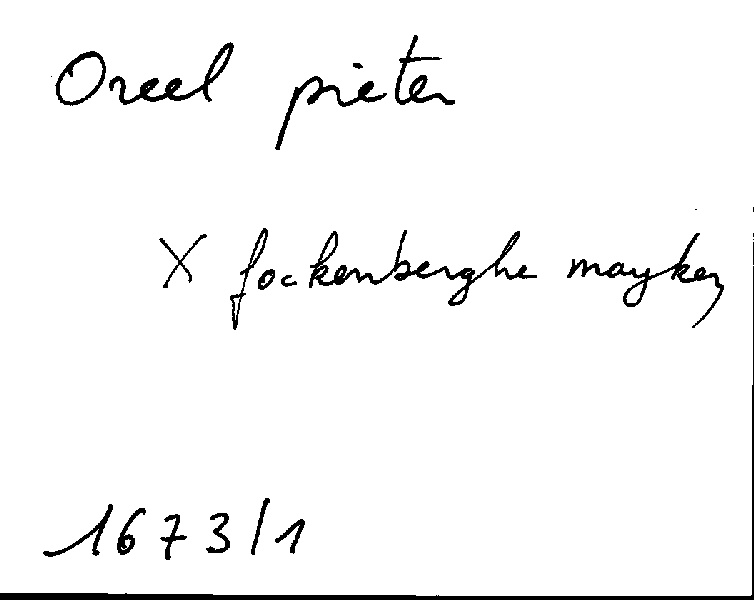 Oreel pieter
X fockenberghe mayken
1673/1